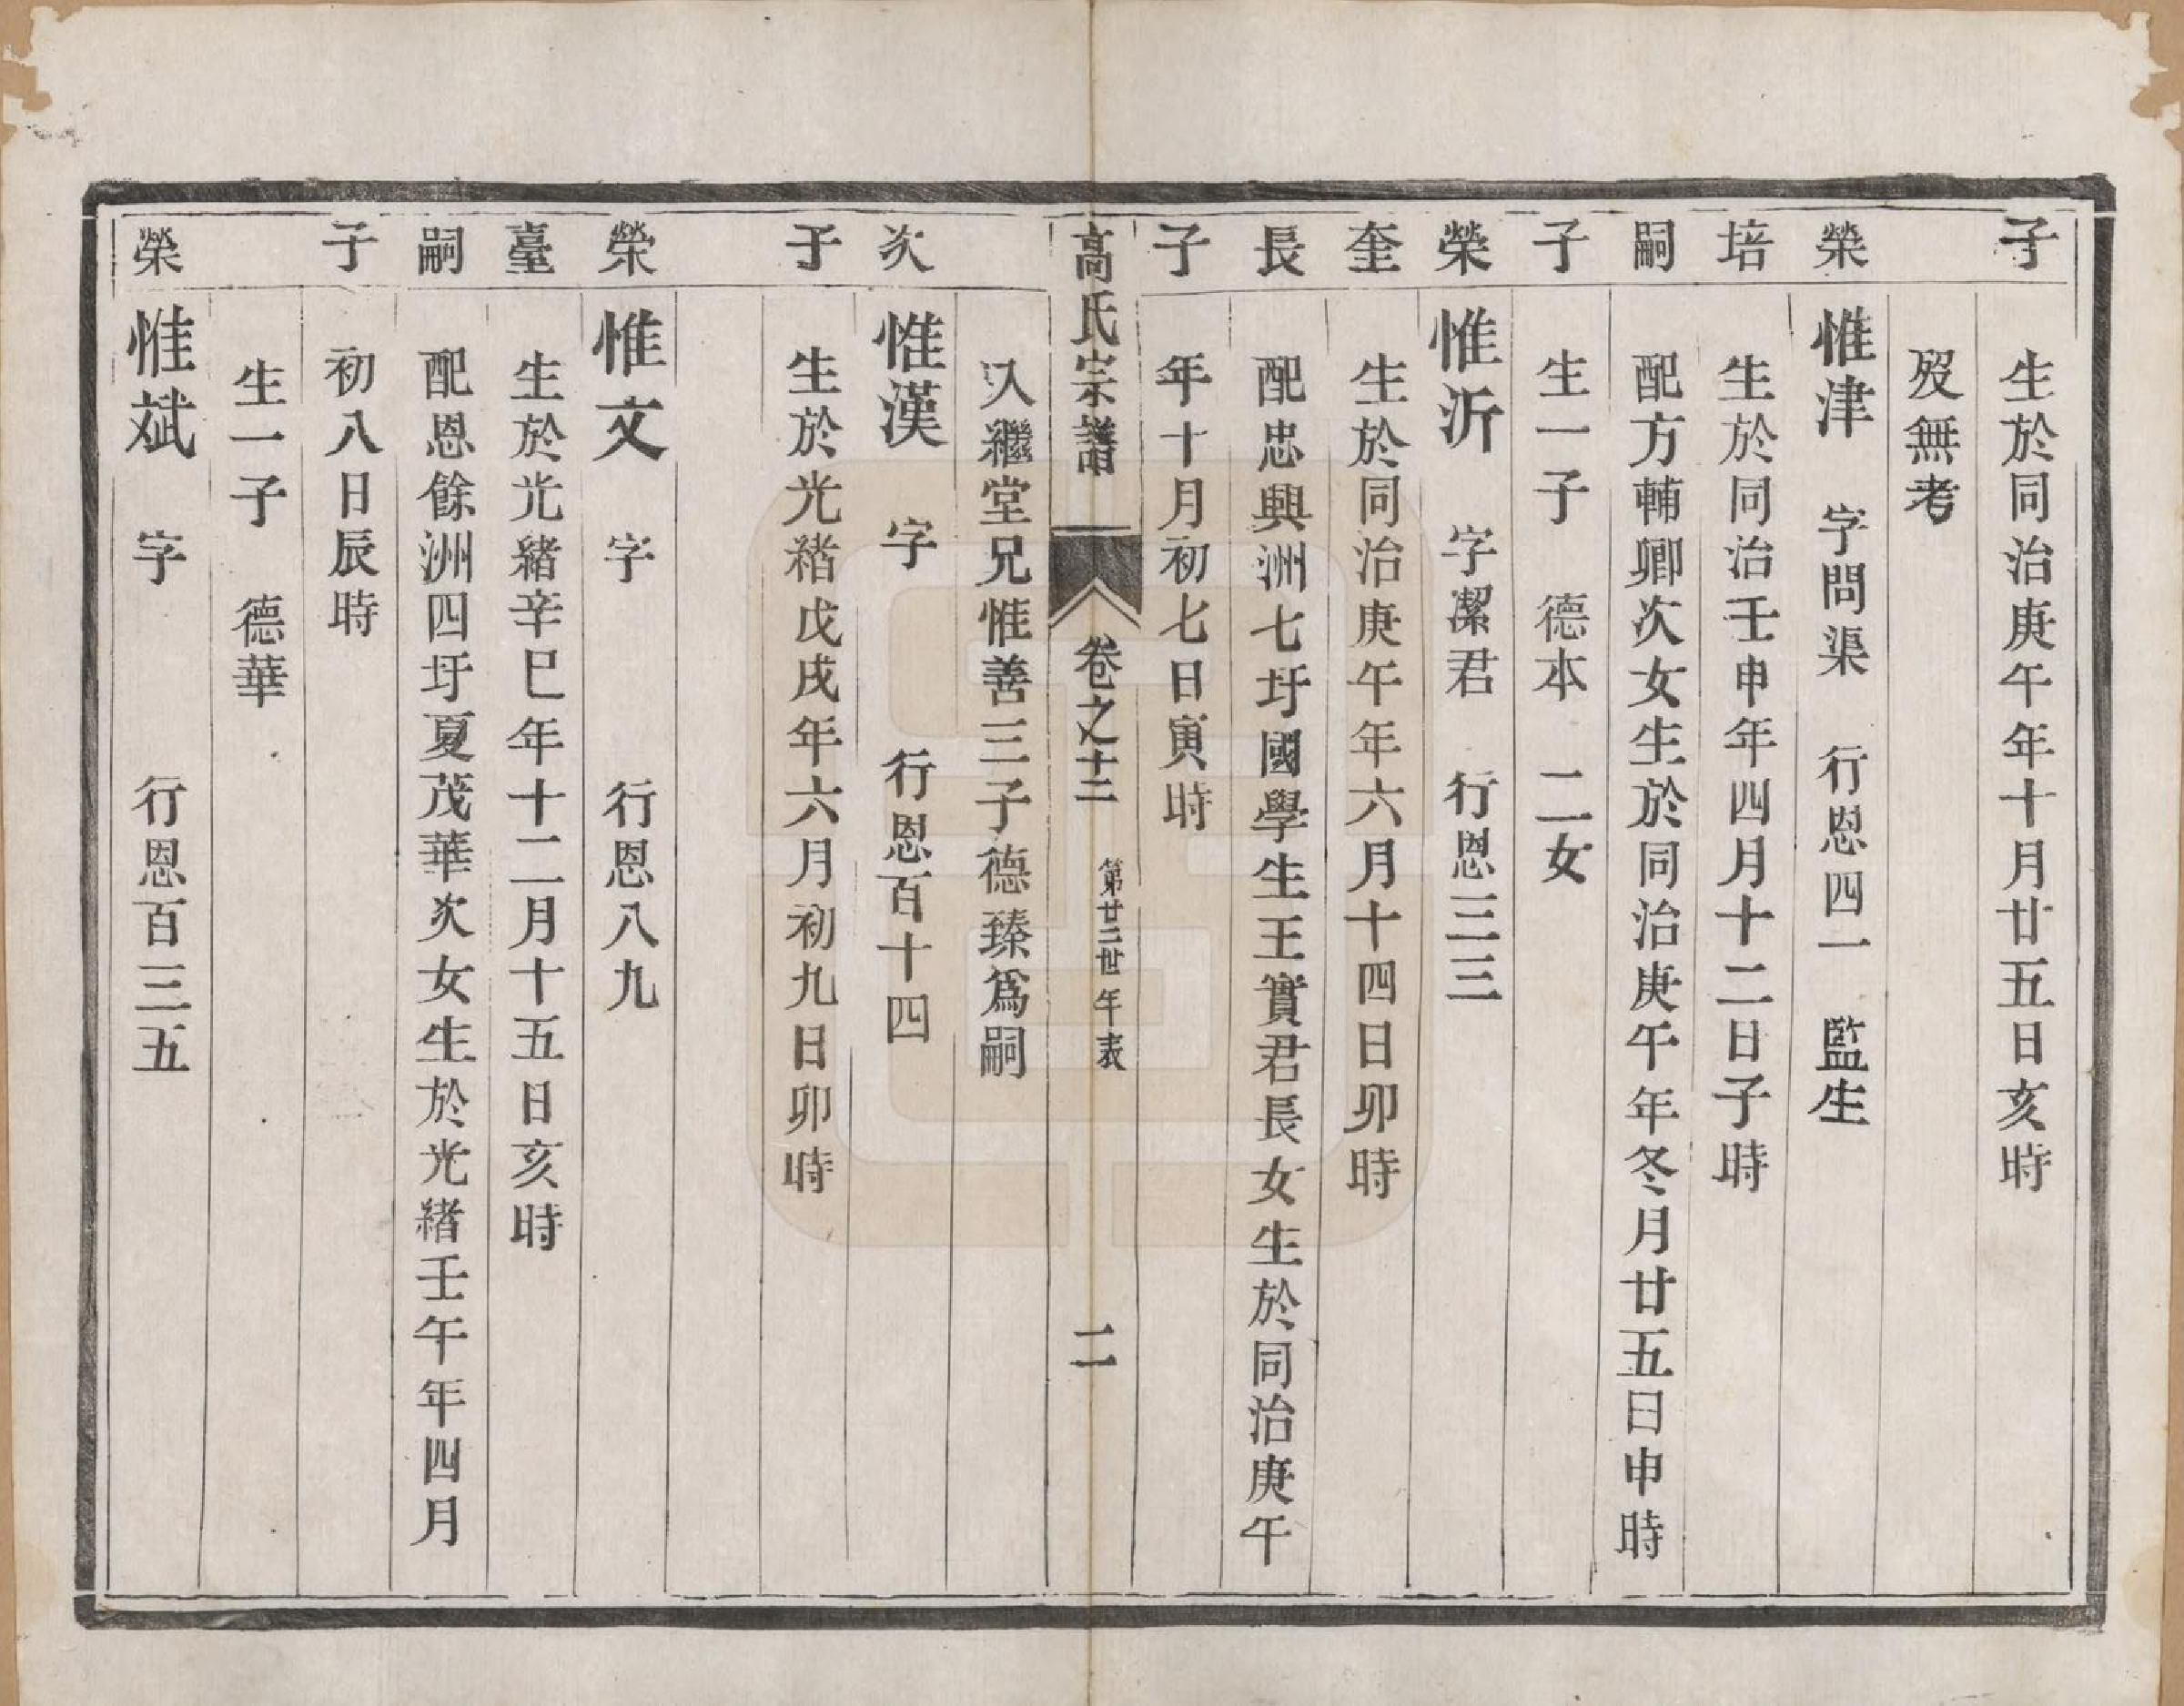 子 生於同治庚午年十月廿五日亥時
歿無考
榮 惟津 字問渠 行恩四一 監生
培 生於同治壬申年四月十二日子時
嗣 配方輔卿次女生於同治庚午年冬月廿五日申時
子 生一子 德本 二女
榮 惟沂 字潔君 行恩三三
奎 生於同治庚午年六月十四日卯時
長 配忠興洲七圩國學生王實君長女生於同治庚午
子 年十月初七日寅時
高氏宗譜 卷之十二 第廿二世年表 二
入繼堂兄惟善三子德臻爲嗣
次 惟漢 字 行恩百十四
子 生於光緒戊戌年六月初九日卯時
榮 惟文 字 行恩八九
臺 生於光緒辛巳年十二月十五日亥時
嗣 配恩餘洲四圩夏茂華次女生於光緒壬午年四月
子 初八日辰時
生一子 德華
榮 惟斌 字 行恩百三五